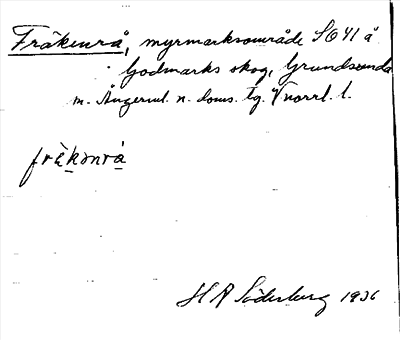 Fräkenrå, myrmarksområde SO 41 å
Godmarks skog, Grundsunda
m. Ångerml. n. doms. tg. Vnorrl. l.
frä̀kənrá
H A Söderberg 1936